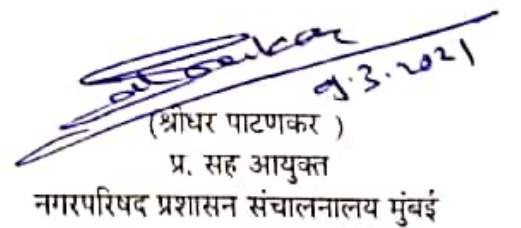 9.3.2021
(श्रीधर पाटणकर )
प्र. सह आयुक्त
नगरपरिषद प्रशासन संचालनालय मुंबई